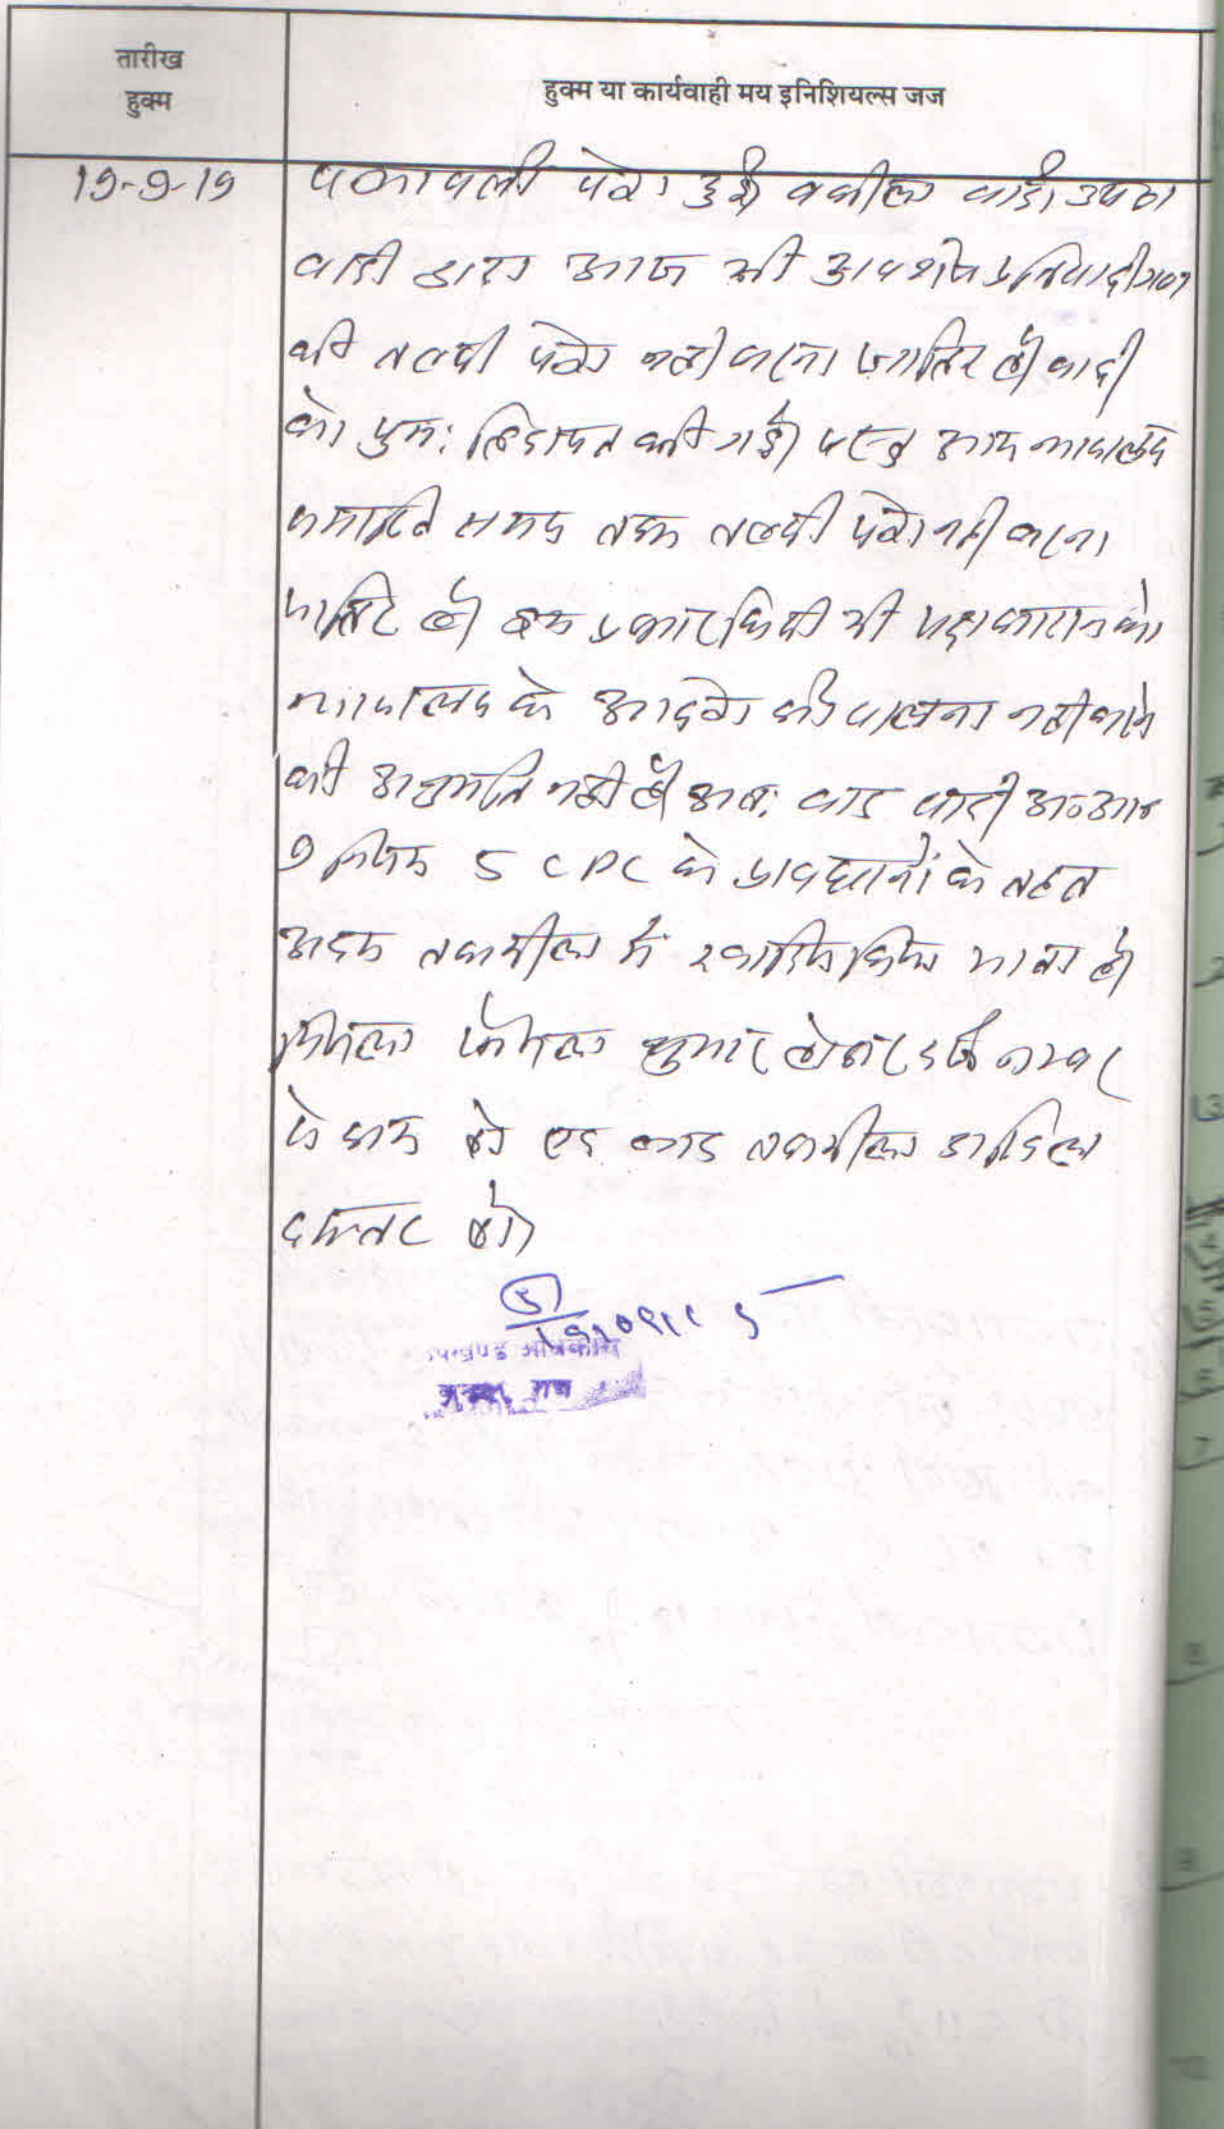 तारीख
हुक्म
हुक्म या कार्यवाही मय इनिशियल्स जज
19-9-19
पत्रावली पेश हुई वकील वादी उप०
वादी द्वारा आज भी अवशेष प्रतिवादीगण
की तलबी पेश नही करना जाहिर है वादी
को पुनः हिदायत की गई परन्तु आज न्यायालय
समाप्ति समय तक तलबी पेश नही करना
जाहिर है इस प्रकार किसी भी पक्षकारान को
न्यायालय के आदेश की पालना नही करने
की अनुमति नही है अतः वाद वादी
9 नियम 5 CPC के प्रावधानों के तहत
अदम तकमील में खारिज किया जाता है
फैसल शुमार होकर दर्ज नम्बर
से कम हो बाद तकमील दाखिल
दफ्तर हो
उपखण्ड अधिकारी